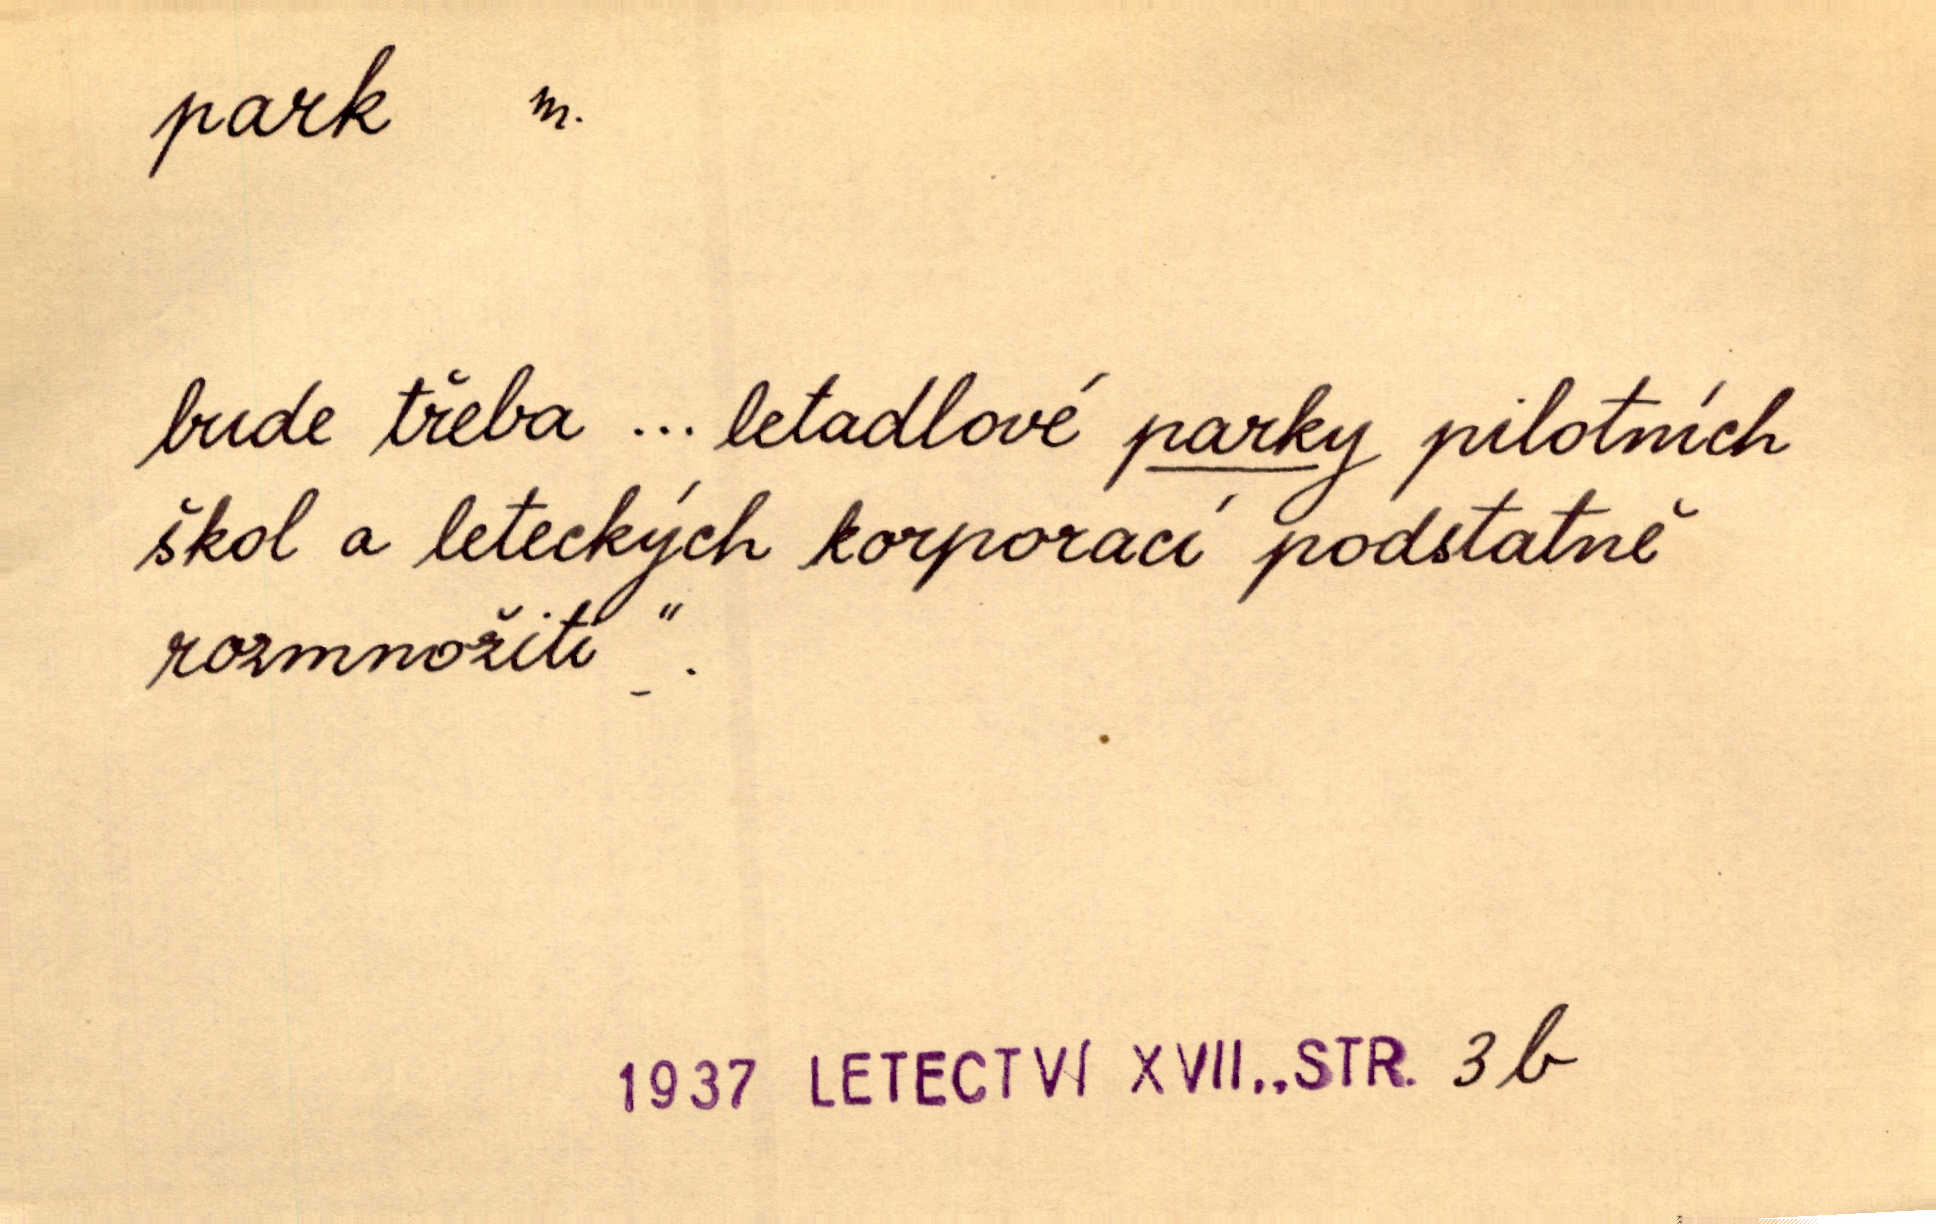 park m.
bude třeba ... letadlové parky pilotních
škol a leteckých korporací podstatně
rozmnožiti _".
1937 LETECTVÍ XVII.,,STR. 3b